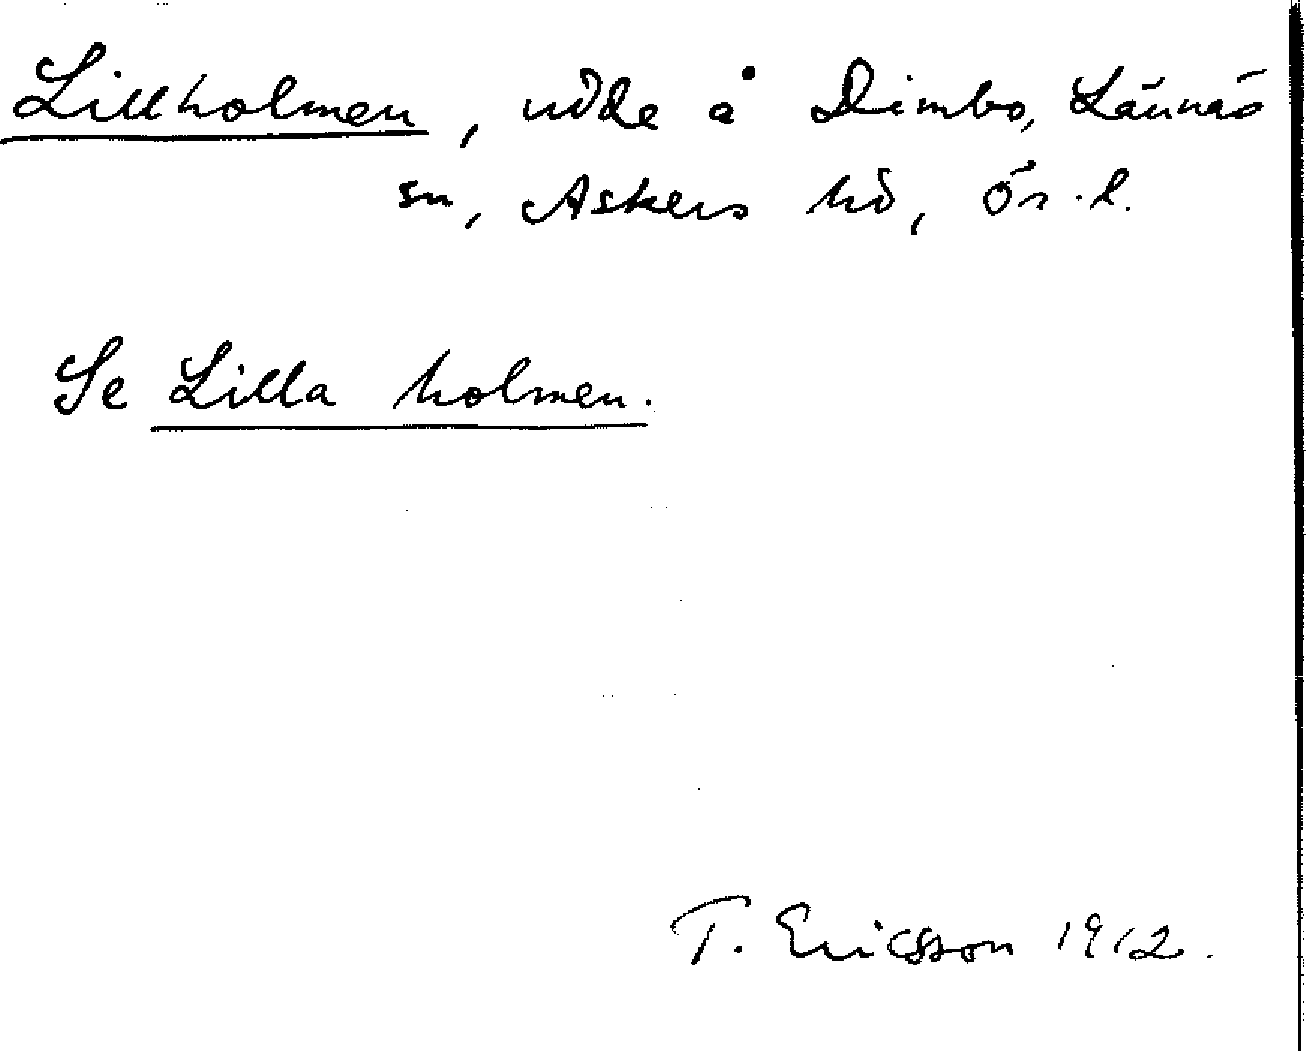 Lillholmen, udde å Dimbo, Lännäs
sn, Askers hd, Ör. l.
Se Lilla holmen.
T. Ericsson 1912.